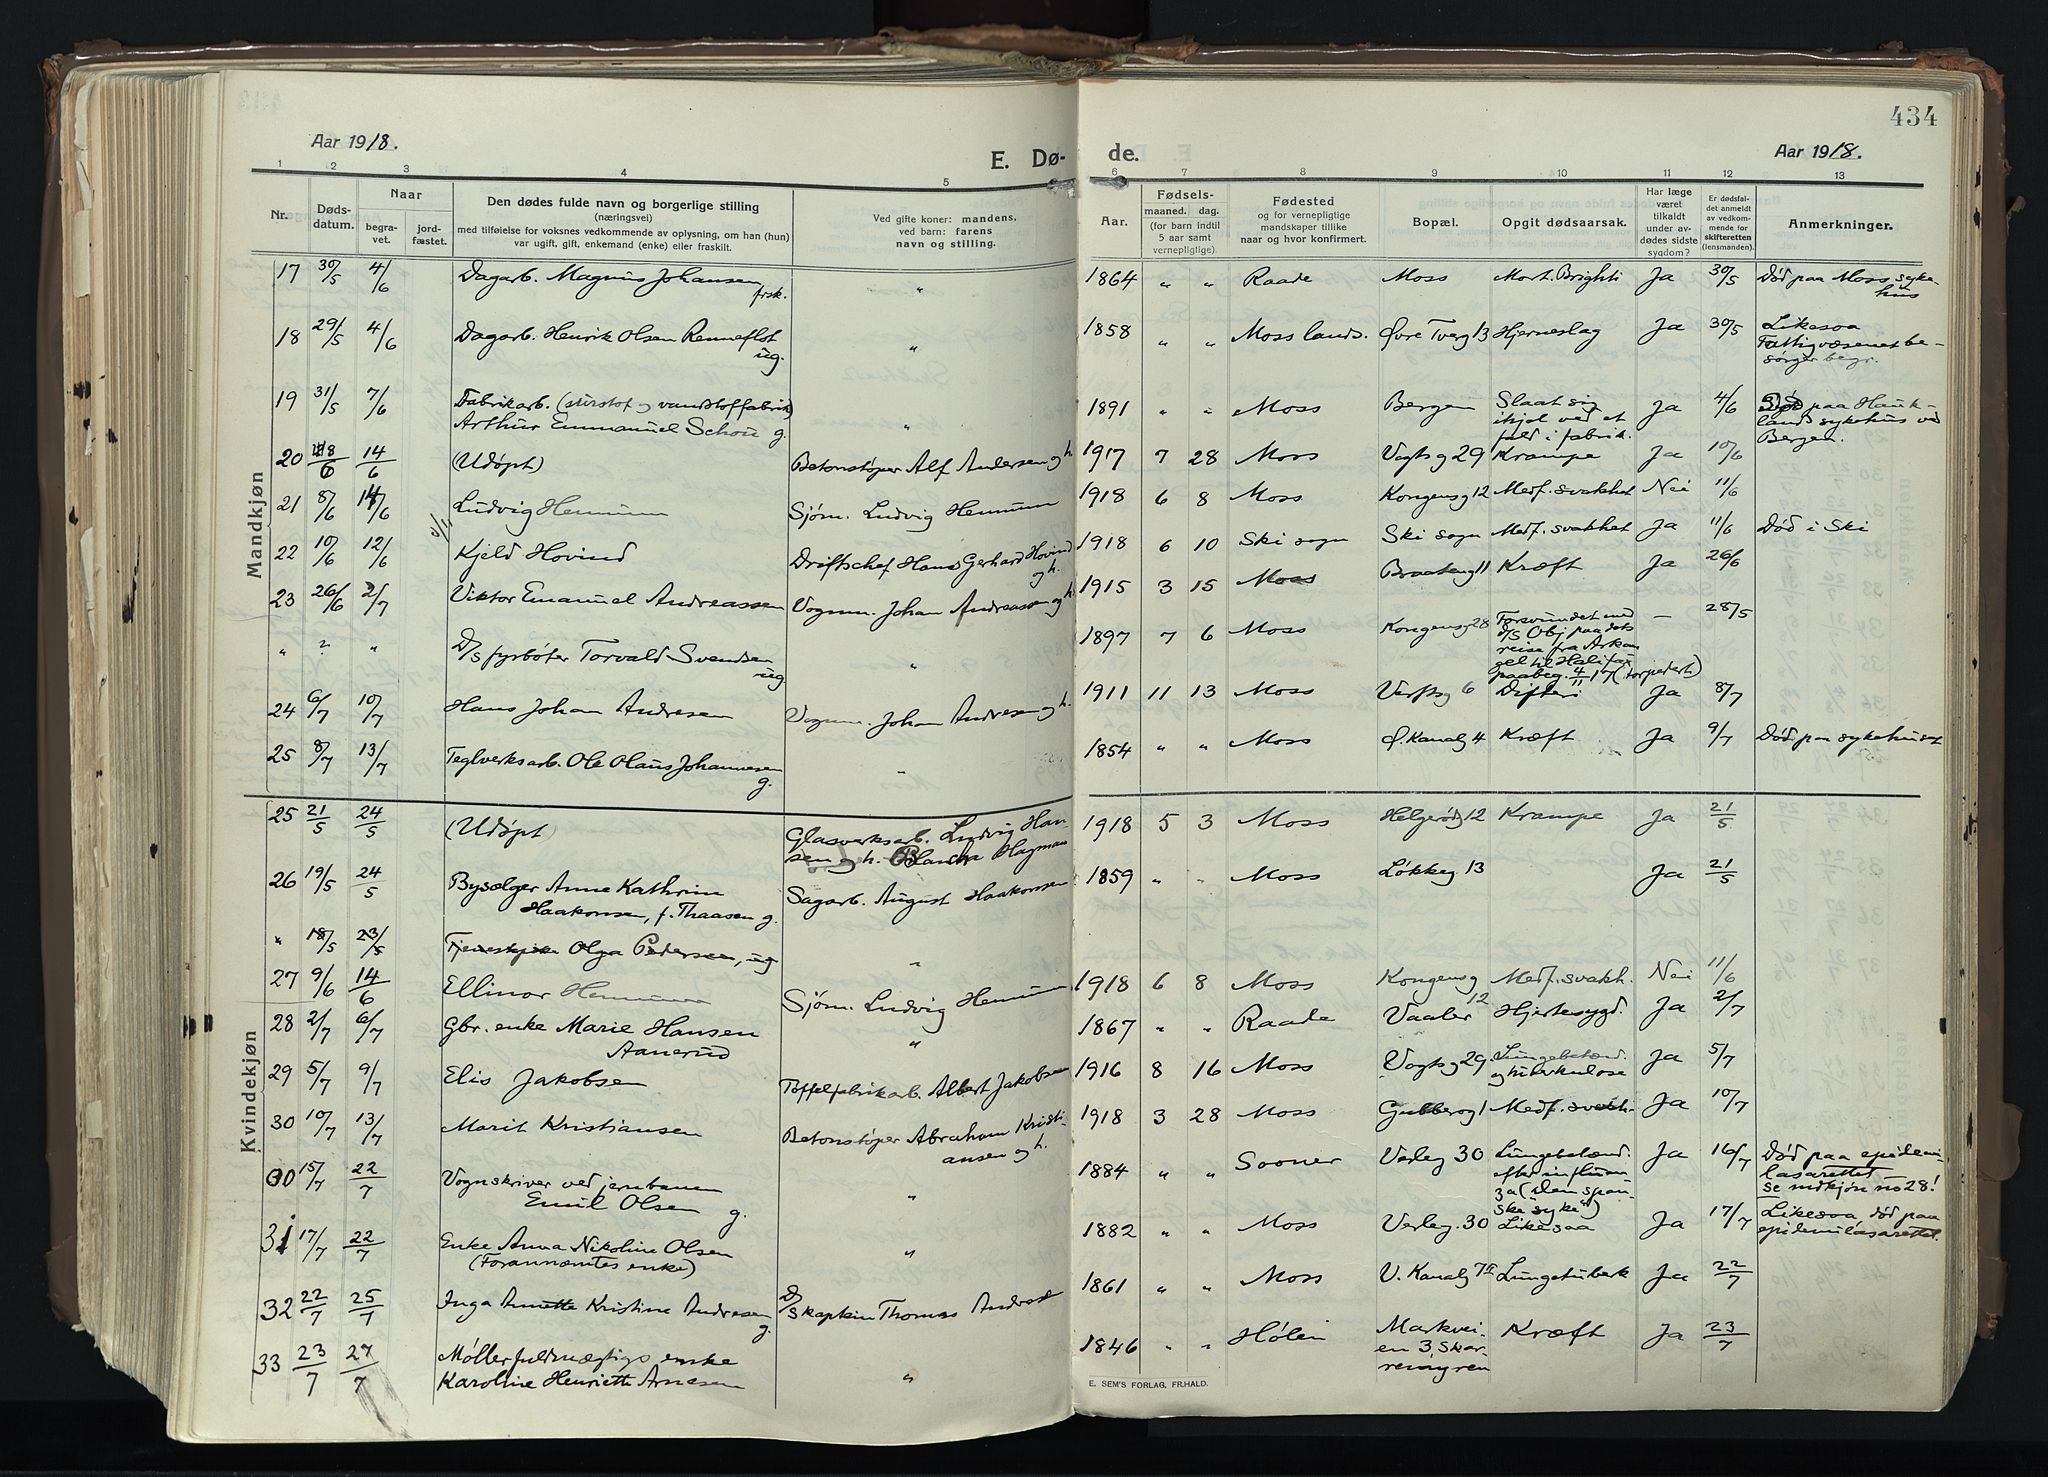 434
Aar 1918.
E. Dø-
de.
Aar 1918.
1 2 3 4 5 6 7 8 9 10 11 12 13
Nr.
Døds-
datum.
Naar
begra-
vet.
jord-
fæstet.
Den dødes fulde navn og borgerlige stilling
(næringsvei)
med tilføielse for voksnes vedkommende av oplysning, om han (hun)
var ugift, gift, enkemand (enke) eller fraskilt.
Ved gifte koner: mandens,
ved barn: farens
navn og stilling.
Aar.
Fødsels-
maaned. dag.
(for barn indtil
5 aar samt
vernepligtige).
Fødested
og for vernepligtige
mandskaper tillike
naar og hvor konfirmert.
Bopæl.
Opgit dødsaarsak.
Har læge
været
tilkaldt
under av-
dødes sidste
sygdom?
Er dødsfal-
det anmeldt
av vedkom-
mende for
skifteretten
(lensmanden).
Anmerkninger.
Mandkjøn
17 30/5 4/6 Dagarb. Magnus Johansen " 1864 " " Raade Moss Mort. Brighti Ja 30/5 Død paa Moss syke-
frsk. hus
18 29/5 4/6 Dagarb. Henrik Olsen Renneflot " 1858 " " Moss lands. Øvre Tverg 13 Hjerneslag Ja 30/5 Likesaa
ug. Fattigvæsenet be-
sørger begr.
19 31/5 7/6 Fabrikarb. (surstof og vandstoffabrik) " 1891 " " Moss Bergen Slaat sig Ja 4/6 Død paa Hauk-
Arthur Emmanuel Schou g. ihjel ved et lands sykehus ved
fald i fabrik. Bergen.
20 8/6 14/6 (Udøpt) Betonstøper Alf Andersen og h. 1917 7 28 Moss Vogts g 29 Krampe Ja 10/6
21 8/6 14/6 Ludvig Hennum Sjøm. Ludvig Hennum 1918 6 8 Moss Kongens g 12 Medf. svakhet Nei 11/6
22 10/6 12/6 Kjeld Hovind Driftschef Hans Gerhard Hovind 1918 6 10 Ski sogn Ski sogn Medf. svakhet Ja 11/6 Død i Ski
og h.
23 26/6 2/7 Viktor Emanuel Andreassen Vognm. Johan Andreassen og h. 1915 3 15 Moss Braaten g 11 Kræft Ja 26/6
" ? " D/S fyrbøter Torvald Svendsen " 1897 7 6 Moss Kongens g 28 Forsvundet med — 28/5
ug. D/S Obj paa dets
reise fra Arkan
gel til Halifax
paabeg. 4/11 17 (torpedert)
24 6/7 10/7 Hans Johan Andresen Vognm. Johan Andresen og h. 1911 11 13 Moss Verfts g 6 Difteri Ja 8/7
25 8/7 13/7 Teglverksarb. Ole Olaus Johannesen " 1854 " " Moss Ø. Kanalg 4 Kræft Ja 9/7 Død paa sykehuset
g.
Kvindekjøn
25 21/5 24/5 (Udøpt) Glasverksarb. Ludvig Han- 1918 5 3 Moss Helgerødg 12 Krampe Ja 21/5
sen og h. Blanca Hagman
26 19/5 24/5 Bysælger Anne Kathrine Sagarb. August Haakonsen 1859 " " Moss Løkkeg 13 Ja 21/5
Haakonsen, f. Thaasen g.
" 18/5 23/5 Tjenestepike Olga Pedersen, ug "
27 9/6 14/6 Ellinor Hennum Sjøm. Ludvig Hennum 1918 6 8 Moss Kongens g 12 Medf. svakh. Nei 11/6
28 2/7 6/7 Gbr. enke Marie Hansen " 1867 " " Raade Vaaler Hjertesygd. Ja 2/7
Aanerud
29 5/7 9/7 Elis Jakobsen Toffelfabrikarb. Albert Jakobsen 1916 8 16 Moss Vogts g 29 Lungebetænd. Ja 5/7
og tuberkulose
30 10/7 13/7 Marit Kristiansen Betonstøper Abraham Kristi- 1918 3 28 Moss Gubberog 1 Medf. svakh. Ja 10/7
ansen og h.
30 15/7 22/7 Vognskriver ved jernbanen " 1884 " " Sooner Verleg 30 Lungebetænd. Ja 16/7 Død paa epidemi-
Emil Olsen g. efter influen lasarettet
za (den span- se mdkjøn no 28!
ske syke)
31 17/7 22/7 Enke Anna Nikoline Olsen " 1882 " " Moss Verleg. 30 Likesaa Ja 17/7 Likesaa død paa
(Forannævntes enke) epidemilasarettet.
32 22/7 25/7 Inga Annette Kristine Andresen D/S kaptein Thomas Andresen 1861 " " Moss V. Kanalg 7 II Lungetuberk Ja 22/7
g.
33 23/7 27/7 Møllerfuldmægtigs enke " 1846 " " Hølen Markvei- Kræft Ja 23/7
Karoline Henriette Arnesen en 3, Skar-
remyren
E. SEM'S FORLAG, FR.HALD.